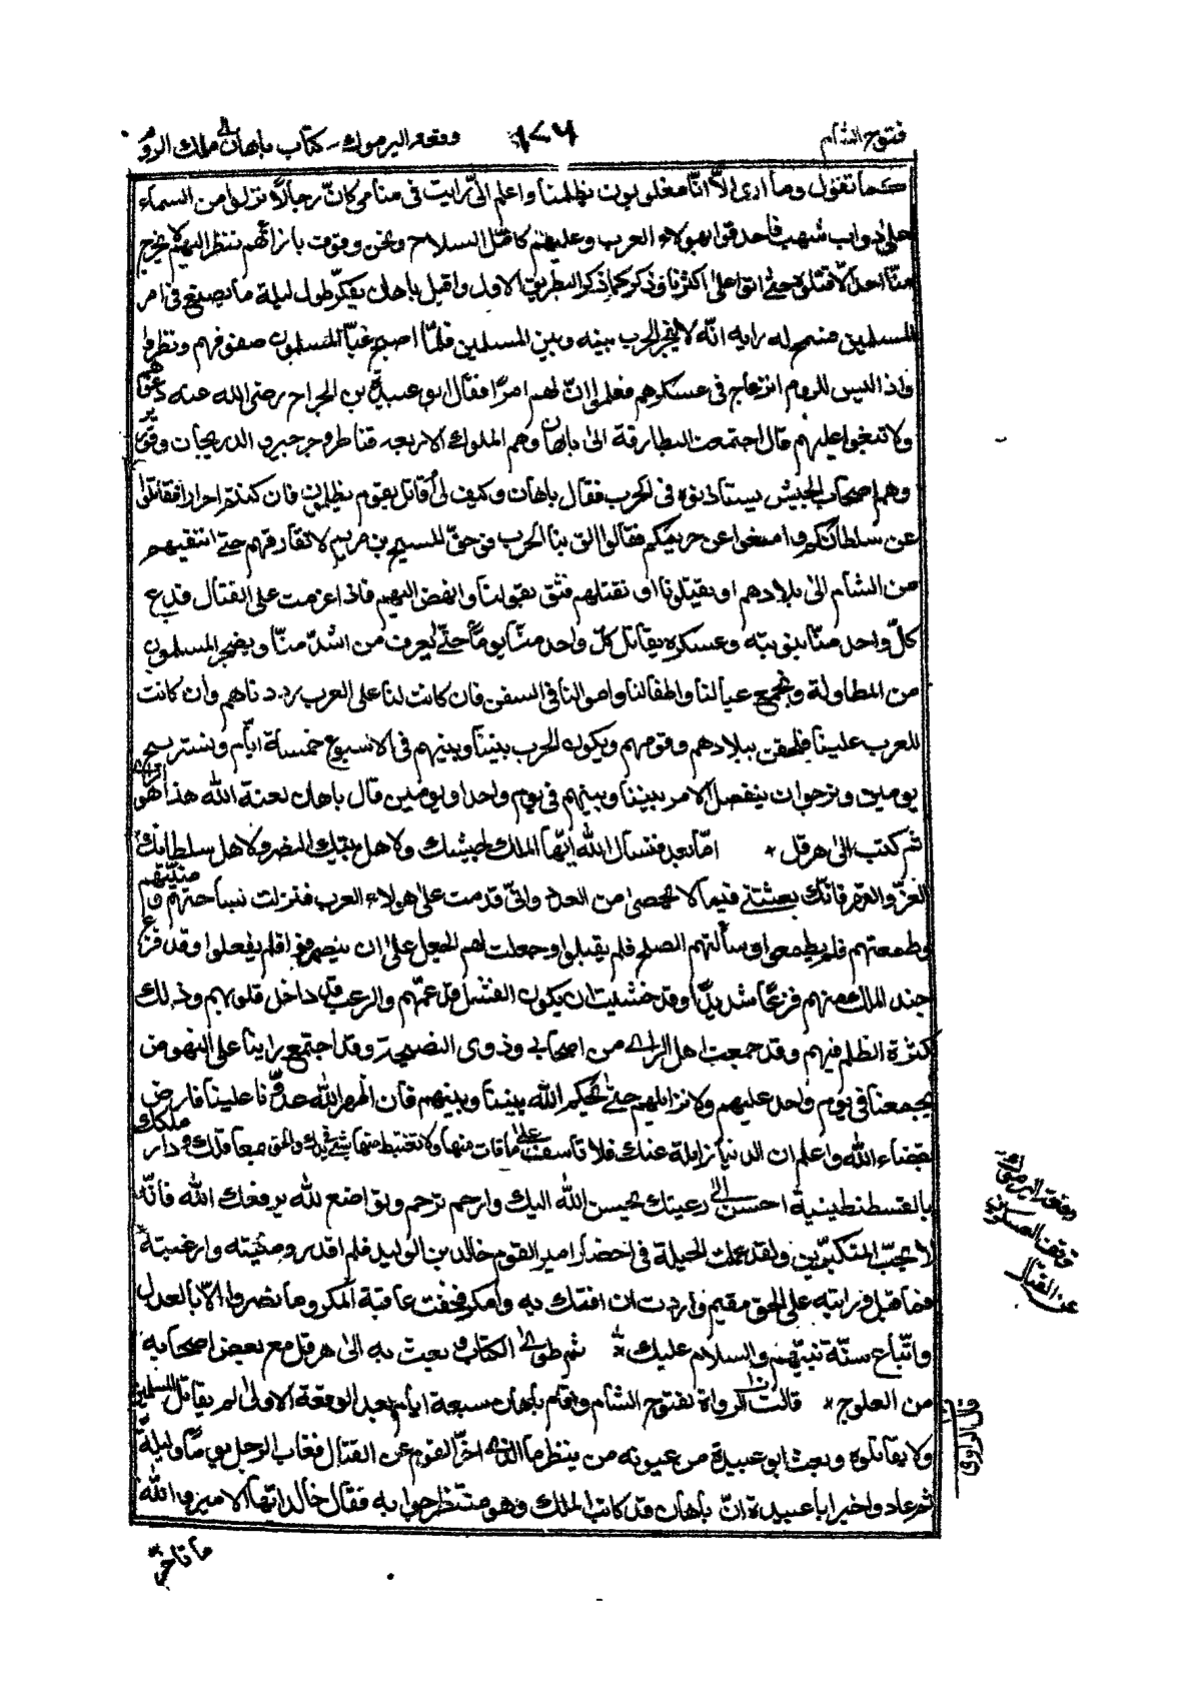 فتوح الشام ١٧٦ وقعة اليرموك - كتاب باهان الى ملك الروم
كما تقول وما ارى الا انا مغلوبون بظلمنا واعلم انى رايت فى منامى كانّ رجالا نزلوا من السماء
على دواب شهب فاحدقوا بهولاء العرب وعليهم كامل السلاح ونحن وقوف بازائهم ننظر اليهم لا يخرج
منا احد الا قتلوه حتى اتوا على اكثرنا وذكر كما ذكر البطريق الاول واقبل باهان يفكر طول ليلة ما يصنع فى امر
المسلمين رايه انه لا يفجر الحرب بينه وبين المسلمين فلمّا اصبح عبّا المسلمون صفوفهم ونظروا
واذا ليس للروم انزعاج فى عسكرهم فعلموا انّ لهم امرا فقال ابو عبيدة بن الجراح رضى الله عنه دعوهم
ولا تبغوا عليهم قال اجتمعت البطارقة الى باهان وهم الملوك الاربعه قناطر وجرجير و الدريجان وقورير
وهم اصحاب الجيش يستاذنوه فى الحرب فقال باهان وكيف لى أقاتل بقوم يظلمون فان كنتم احرارا فقاتلوا
عن سلطانكم وامنعوا عن حريمكم فقالوا الق بنا الحرب فو حقّ المسيح بن مريم لا نفارقهم حتى ننفيهم
من الشام الى بلادهم او يقتلونا او نقتلهم فثق بقولنا وانهض اليهم فاذا عزمت على القتال فدع
كلّ واحد منّا بنوبته وعسكره يقاتل كلّ واحد منّا يوما حتى ليعرف من اشدّ منّا ويضجر المسلمون
من المطاولة ونجمع عيالنا واطفالنا واموالنا فى السفن فان كانت لنا على العرب رددناهم وان كانت
للعرب علينا فلحقن ببلادهم وقومهم ويكون الحرب بيننا وبينهم فى الاسبوع خمسة ايّام ونستريح
يومين ونرجوان ينفصل الامر بيننا وبينهم فى يوم واحد او يومين قال باهان لعنة الله هذا هو الراى
ثم كتب الى هرقل * امّا بعد فنسال الله ايّها الملك لجيشك ولاهل بيتك النصر ولاهل سلطانك
العز والقهر فانّك بعثتنى فيما لا يحصى من العدد وانى قدمت على هولاء العرب فنزلت بساحتهم و منيّتهم
وطمعتهم فلم يطمعوا وسألتهم الصلح فلم يقبلوا وجعلت لهم الجعل على ان ينصرفوا فلم يفعلوا وقد فزع
جند الملك منهم فزعا شديدا وقد خشيت ان يكون الفشل قد عمّهم والرعب قد داخل قلوبهم وذلك
لكثرة الظلم فيهم وقد جمعت اهل الراى من اصحابى وذوى النصيحة وقد اجتمع راينا على النهوض
بجمعنا فى يوم واحد عليهم ولا نزايلهم حتى يحكم الله بيننا وبينهم فان اظهر الله عدوّنا علينا فارض
بقضاء الله واعلم ان الدنيا زايلة عنك فلا تأسف على ما فات منها ولا تغتبط منها بشئ فى يدك والحق بمعاقلك ودار ملكك
بالقسطنطينية احسن الى رعيتك يحسن الله اليك وارحم ترحم وتواضع لله يرفعك الله فانّه
لا يحبّ المتكبّرين ولقد عملت الحيلة فى احضار امير القوم خالد بن الوليد فلم اقدر ومنيته وارغبته
فما قبل فرايته على الحق مقيم واردت ان افتك به وامكر فخفت عاقبة المكر وما نصروا الا بالعدل
واتّباع سنّة نبيّهم والسلام عليك * ثم طوى الكتاب وبعث به الى هرقل مع بعض اصحابه
من العلوج * قالت الرواة لفتوح الشام واقام باهان سبعة ايام بعد الوقعة الاولى لم يقاتل المسلمين
ولا يقاتلوه وبعث ابو عبيدة من عيونه من ينظر ما الذى اخّر القوم عن القتال فغاب الرجل يوما وليلة
ثم عاد واخبر ابا عبيدة انّ باهان قد كاتب الملك وهو منتظر جوابه فقال خالد ايّها الامير والله
ما تاخر
وقعة اليرموك
توقف العسكرين
عن القتال
قال الراوى